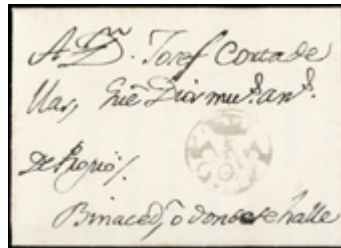 A D. Josef Cortade
llas, gue Dios mus. ans.
De Oficio /.
Binaced, o donde se halle